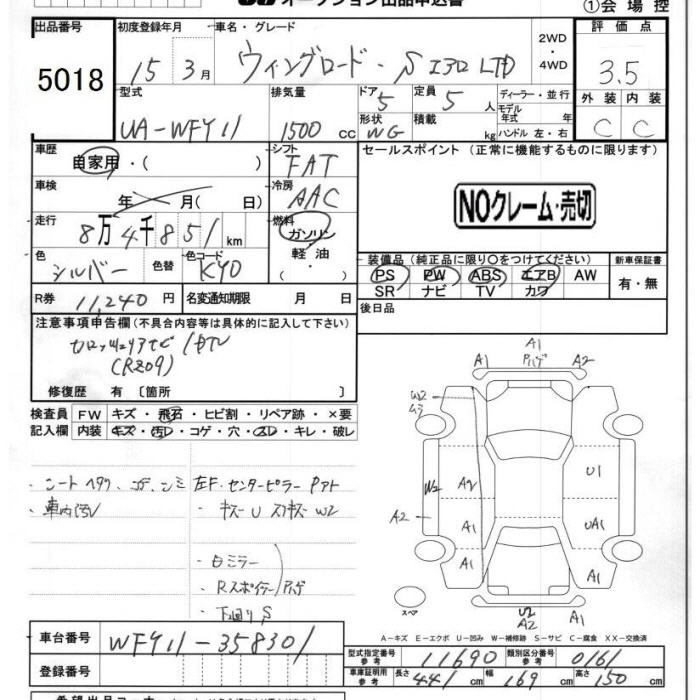 オークション出品申込書
①会場控
出品番号 初度登録年月 車名・グレード 2WD ・4WD 評価点
5018 15 3月 ウィングロード・S EXD LTD 3.5
型式 排気量 ドア 5 定員 5人 ディーラー・並行 外装 内装
UA-WFY11 1500 cc 形状 WG 積載 kg モデル年式 年式 ハンドル 左・右 C C
車歴 自家用・( ) シフト FAT セールスポイント (正常に機能するものに限ります)
車検 年 月( 日) 冷房 AAC
NOクレーム・売切
走行 8万4千851km 燃料 ガソリン 軽油・
装備品 (純正品に限り○をつけてください) 新車保証書
色 シルバー 色替 色コード KY0 PS PW ABS エアB AW 有・無
SR ナビ TV カワ
R券 11,240円 名変通知期限 月 日 後日品
注意事項申告欄(不具合内容等は具体的に記入して下さい)
(R209)
修復歴 有〔箇所 〕
検査員 FW キズ・飛石・ヒビ割・リペア跡・×要
記入欄 内装 キズ・汚レ・コゲ・穴・スレ・キレ・破レ
・シートヘタリ、コゲ、シミ 左F・センターピラー Pアト
・車内汚レ ・キズ U W2
・白ミラー
・Rスポイラー ハゲ
・下廻りS
A1
A1 Pハゲ A2
W2
W2 A2 U1
A2 A1 UA1
A1 A1
スペア U2 A2 A1
A-キズ E-エクボ U-凹み W-補修跡 S-サビ C-腐食 XX-交換済
車台番号 WFY11-358301
型式指定番号 参考 11690 類別区分番号 参考 0161
登録番号 車庫証明用 参考 長さ 441cm 幅 169cm 高さ 150cm